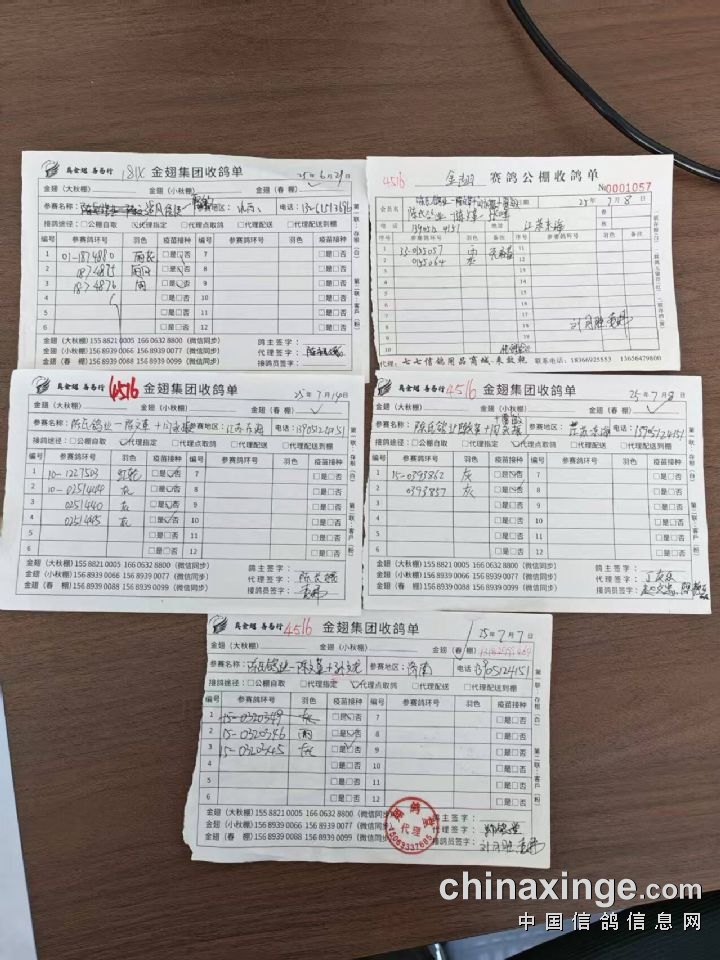 真金翅 善易行 181X 金翅集团收鸽单
25年6月29日
金翅（大秋棚） 金翅（小秋棚） 金翅（春 棚）
参赛名称： 参赛地区： 电话：
接鸽途径：□公棚自取 □代理指定 □代理点取鸽 □代理配送 □代理配送到棚
编号 参赛鸽环号 羽色 疫苗接种 编号 参赛鸽环号 羽色 疫苗接种
1 01-1874880 □是□否 7 □是□否
2 1874875 □是□否 8 □是□否
3 1874876 □是□否 9 □是□否
4 □是□否 10 □是□否
5 □是□否 11 □是□否
6 □是□否 12 □是□否
金翅（大秋棚）155 8821 0005 166 0632 8800（微信同步） 鸽主签字：
金翅（小秋棚）156 8939 0066 156 8939 0077（微信同步） 代理签字：
金翅（春 棚）156 8939 0088 156 8939 0099（微信同步） 接鸽员签字：
第一联：存根（白） 第二联：客户（粉）
4516 金翅 赛鸽公棚收鸽单
№0001057
25年7月8日
会员名
电话 13905124151 地址 江苏东海
序号 参赛鸽环号 羽色 备注 序号 参赛鸽环号 羽色 备注
1 15-0155057 雨 11
2 0155064 灰 12
代理：七七信鸽用品商城-来致乾 联系电话：18366925553 13656479800
真金翅 善易行 4516 金翅集团收鸽单
25年7月10日
金翅（大秋棚） 金翅（小秋棚） 金翅（春 棚） ✓
参赛名称：陈氏鸽业-陈文革+闫永振 参赛地区：江苏东海 电话：13905124151
接鸽途径：□公棚自取 ☑代理指定 □代理点取鸽 □代理配送 □代理配送到棚
编号 参赛鸽环号 羽色 疫苗接种 编号 参赛鸽环号 羽色 疫苗接种
1 10-1227503 红轮 □是□否 7 □是□否
2 10-0251444 灰 □是□否 8 □是□否
3 0251440 灰 □是□否 9 □是□否
4 0251445 灰 □是□否 10 □是□否
5 □是□否 11 □是□否
6 □是□否 12 □是□否
金翅（大秋棚）155 8821 0005 166 0632 8800（微信同步） 鸽主签字：
金翅（小秋棚）156 8939 0066 156 8939 0077（微信同步） 代理签字：
金翅（春 棚）156 8939 0088 156 8939 0099（微信同步） 接鸽员签字：
第一联：存根（白） 第二联：客户（粉）
真金翅 善易行 4516 金翅集团收鸽单
25年7月8日
金翅（大秋棚） 金翅（小秋棚） 金翅（春 棚） ✓
参赛名称： 参赛地区：江苏东海 电话：13905124151
接鸽途径：□公棚自取 ☑代理指定 □代理点取鸽 □代理配送 □代理配送到棚
编号 参赛鸽环号 羽色 疫苗接种 编号 参赛鸽环号 羽色 疫苗接种
1 15-0393862 灰 □是□否 7 □是□否
2 0393857 灰 □是□否 8 □是□否
3 □是□否 9 □是□否
4 □是□否 10 □是□否
5 □是□否 11 □是□否
6 □是□否 12 □是□否
金翅（大秋棚）155 8821 0005 166 0632 8800（微信同步） 鸽主签字：
金翅（小秋棚）156 8939 0066 156 8939 0077（微信同步） 代理签字：
金翅（春 棚）156 8939 0088 156 8939 0099（微信同步） 接鸽员签字：
第一联：存根（白） 第二联：客户（粉）
真金翅 善易行 4516 金翅集团收鸽单
25年7月7日
金翅（大秋棚） 金翅（小秋棚） 金翅（春 棚） ✓
参赛名称： 参赛地区：济南 电话：13905124151
接鸽途径：□公棚自取 □代理指定 ☑代理点取鸽 □代理配送 □代理配送到棚
编号 参赛鸽环号 羽色 疫苗接种 编号 参赛鸽环号 羽色 疫苗接种
1 15-0320349 灰 □是□否 7 □是□否
2 15-0320346 雨 □是□否 8 □是□否
3 15-0320345 灰 □是□否 9 □是□否
4 □是□否 10 □是□否
5 □是□否 11 □是□否
6 □是□否 12 □是□否
金翅（大秋棚）155 8821 0005 166 0632 8800（微信同步） 鸽主签字：
金翅（小秋棚）156 8939 0066 156 8939 0077（微信同步） 代理签字：
金翅（春 棚）156 8939 0088 156 8939 0099（微信同步） 接鸽员签字：
第一联：存根（白） 第二联：客户（粉）
代理
chinaxinge.com
中国信鸽信息网